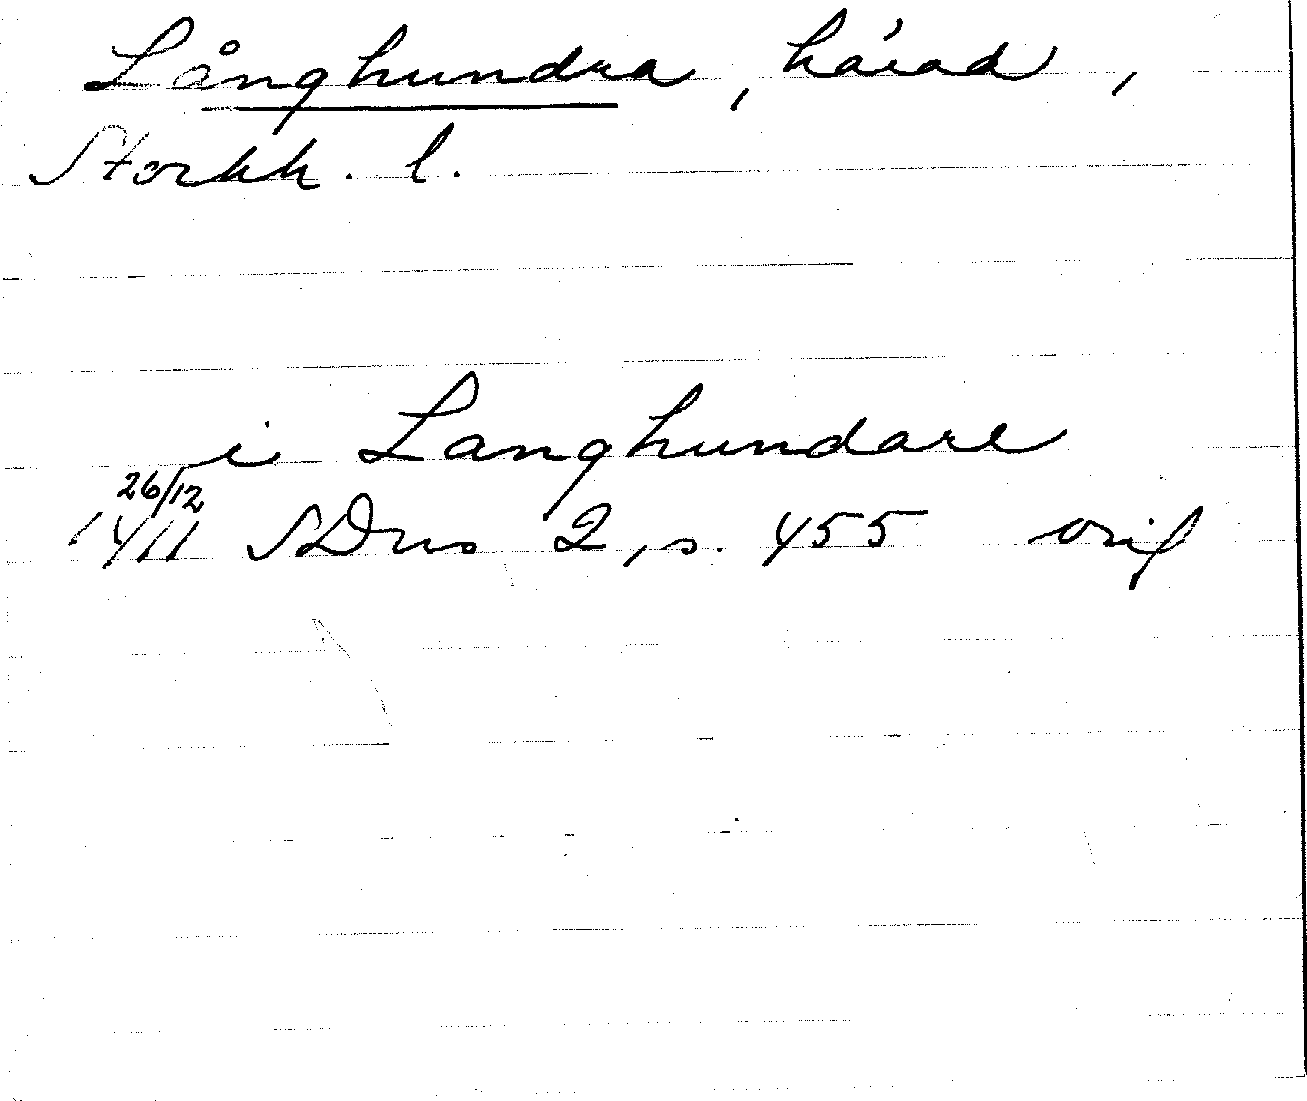 Långhundra, härad,
Stockh. l.
i Langhundare
26/12
1411 SDns 2, s. 455 orig